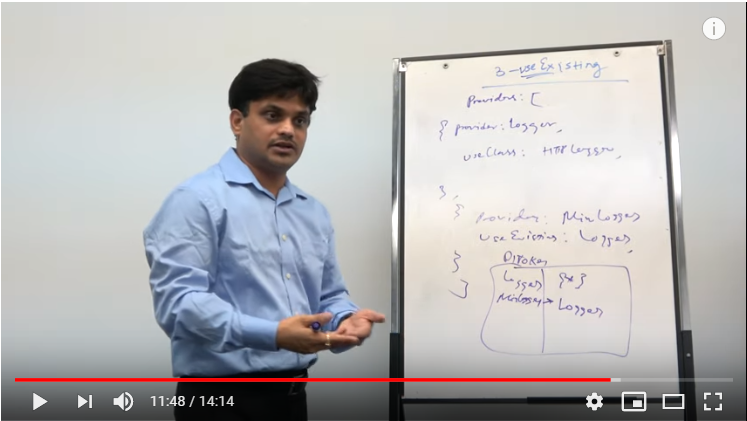 3 - useExisting
Providers: [
{ provider: Logger,
useClass: HttpLogger,
},
{
Provider: MinLogger
useExisting: Logger,
}
DI Token
]
Logger {*}
MinLogger Logger
11:48 / 14:14